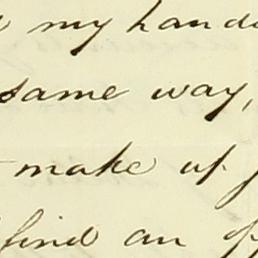 my hand
same way,
make up
find an